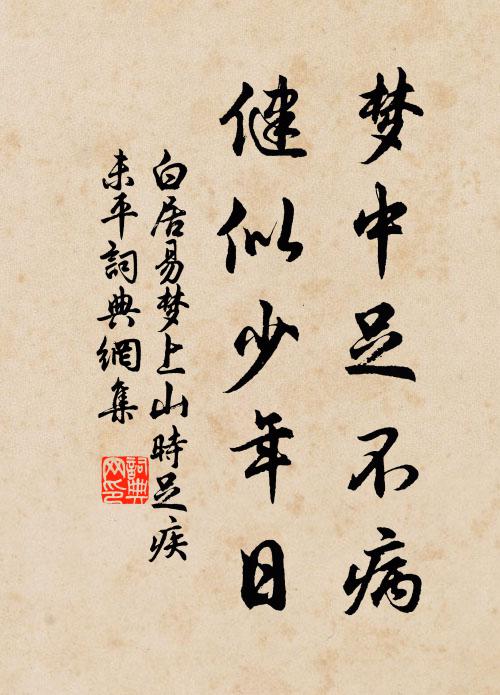 梦中足不病
健似少年日
白居易梦上山時足疾
未平詞典網集
詞典
网印